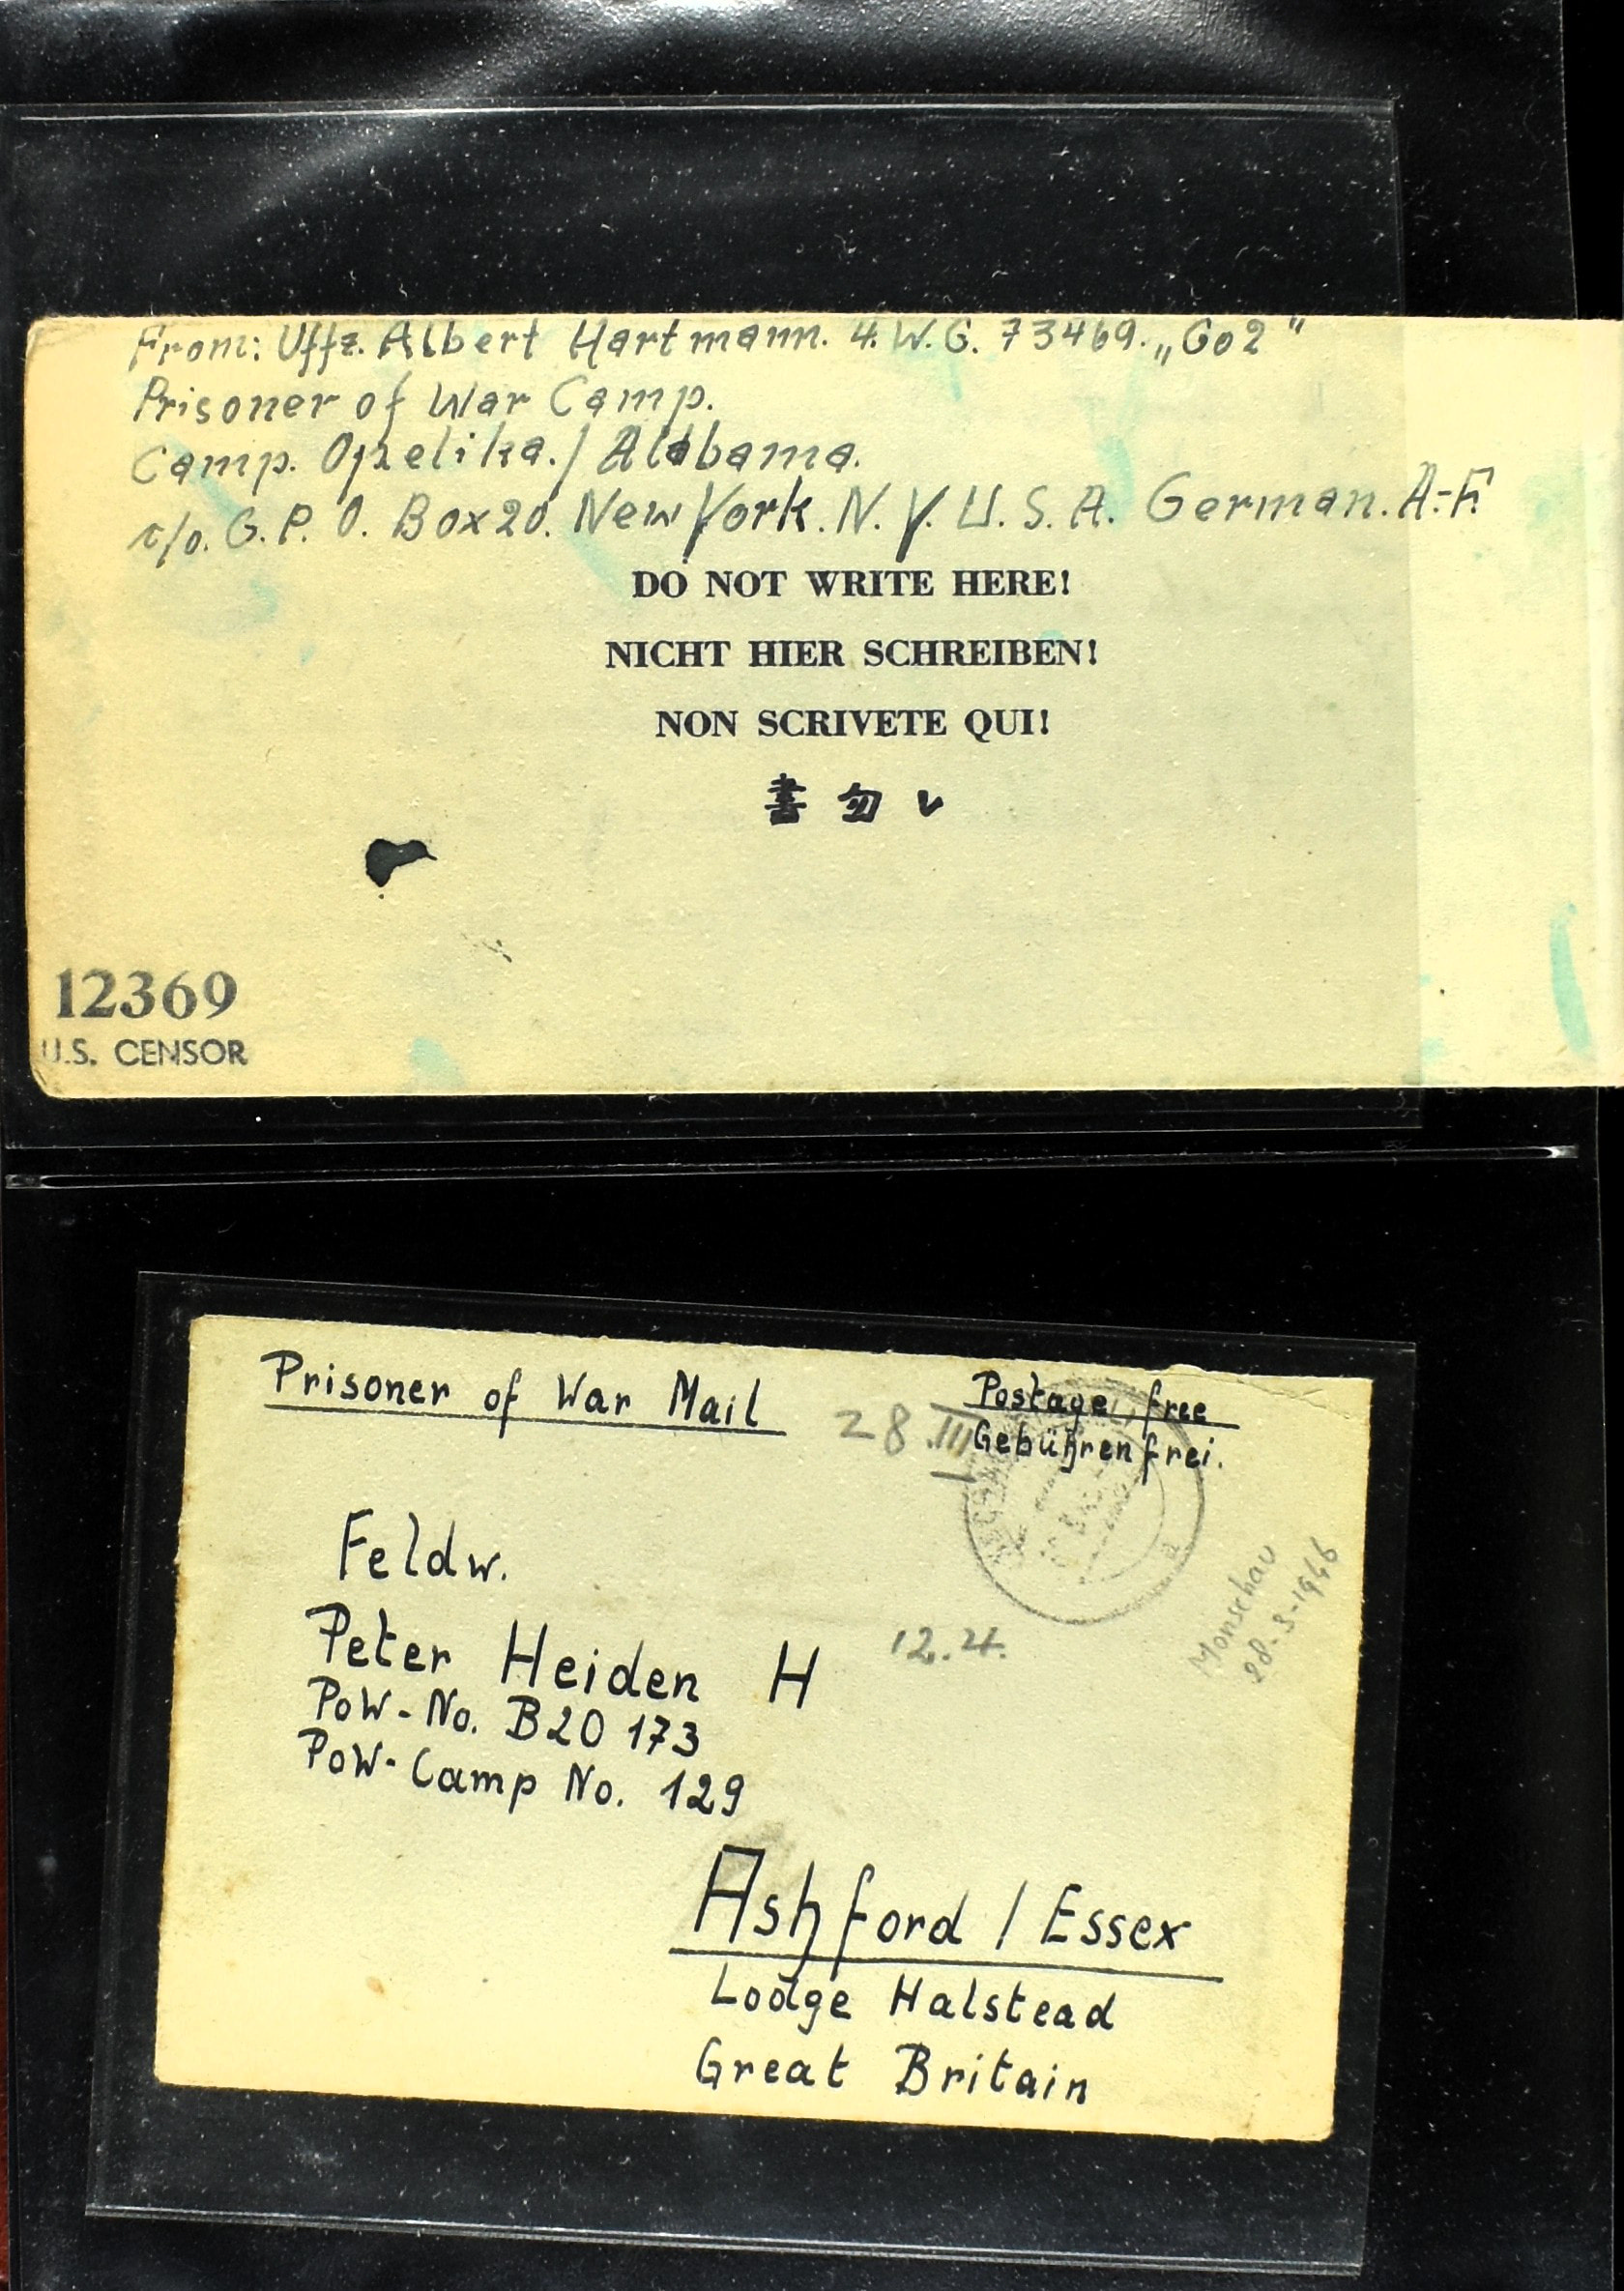 From: Uffz. Albert Hartmann. 4. W. G. 73469. „Co2"
Prisoner of War Camp.
Camp. Opelika./ Alabama.
c/o. G. P. O. Box 20. New York. N. Y. U. S. A. German. A.-F.
DO NOT WRITE HERE!
NICHT HIER SCHREIBEN!
NON SCRIVETE QUI!
書勿レ
12369
U.S. CENSOR
Prisoner of War Mail
Postage free
28.III
Gebührenfrei.
Feldw.
Peter Heiden H
12.4.
Monschau
28-3-1946
PoW-No. B20 173
PoW-Camp No. 129
Ashford / Essex
Lodge Halstead
Great Britain